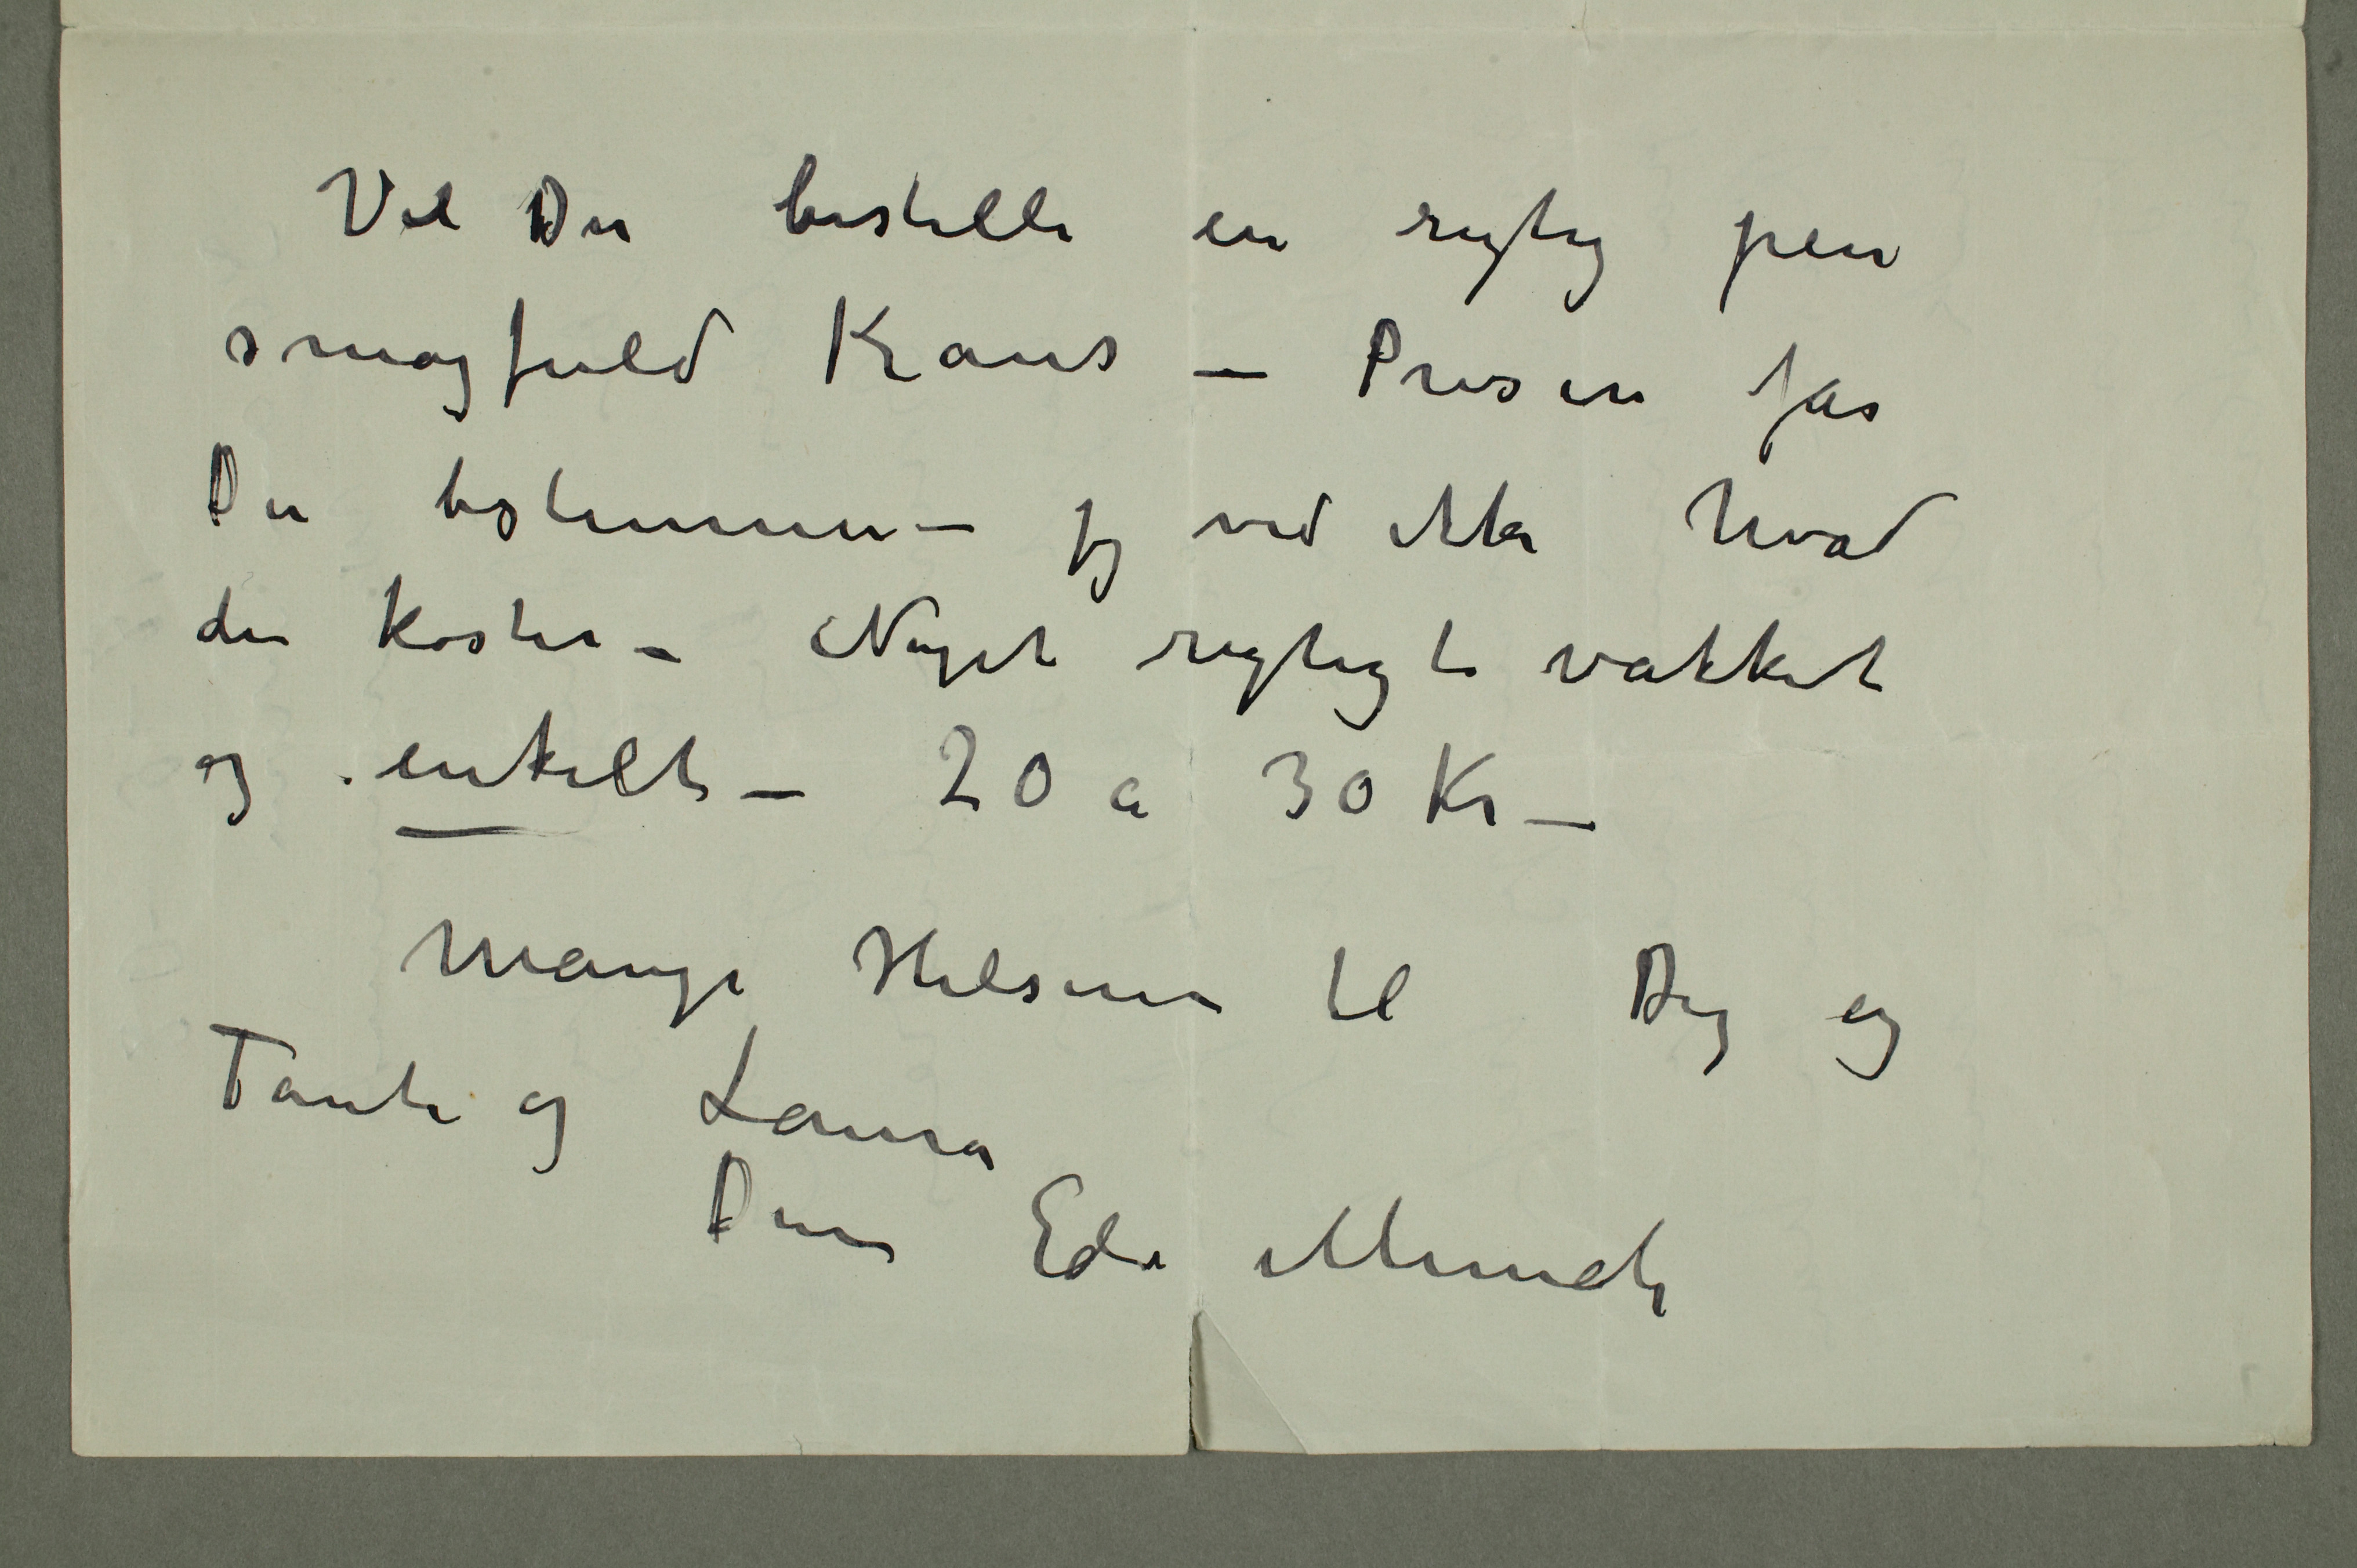 Vil Du bestille en rigtig pen
smagfuld Krans – Prisen får
Du bestemme – jeg ved ikke hvad
den koster – Noget rigtigt vakkert
og enkelt – 20 a 30 Kr –
Mange Hilsener til Dig og
Tante og Laura
Din Edv Munch